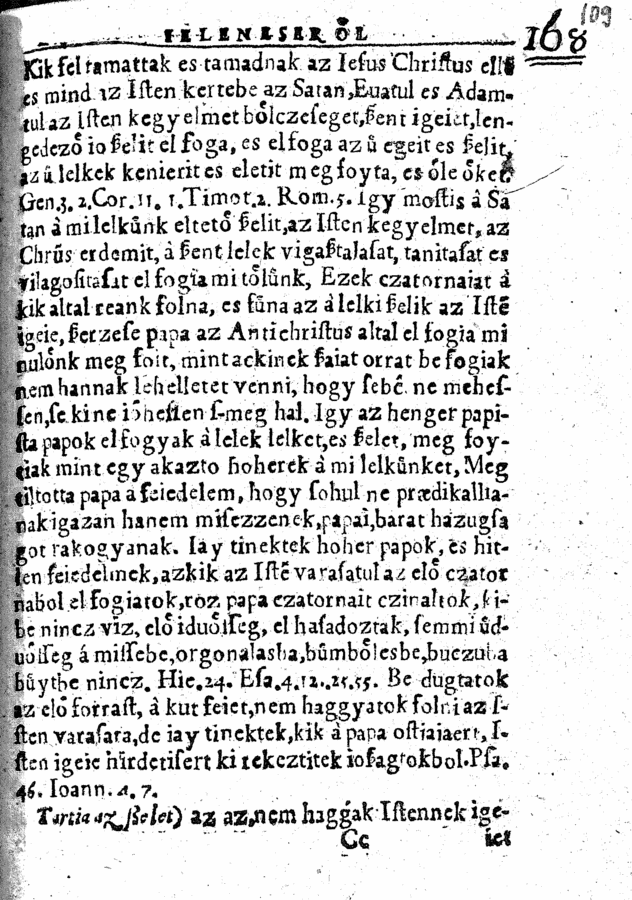 109
IELENESEROL 168
Kik fel tamattak es tamadnak az Iesus Christus elle
es mind az Isten kertebe az Satan, Euatul es Adam-
tul az Isten kegyelmet bólczeseget, ßent igeiet, len-
gedezó io ßelit el foga, es elfoga az ů egeit es ßelit,
az ů lelkek kenierit es eletit megfoyta, es óle óket.
Gen.3. 2.Cor.11. 1.Timot.2. Rom.5. Igy mostis â Sa
tan â mi lelkůnk eltetó ßelit, az Isten kegyelmet, az
Chrůs erdemit, â ßent lelek vigaßtalasat, tanitasat es
vilagositasat el fogia mi tólůnk, Ezek czatornaiat â
kik altal reank folna, es fůna az â lelki ßelik az Istē
igeie, ßerzese papa az Antichristus altal el fogia mi
nulónk meg foit, mint ackinek ßaiat orrat be fogiak
nem hannak lehelletet venni, hogy sebē ne mehes-
sen, se kine ióhessen s-meg hal. Igy az henger papi-
sta papok elfogyak â lelek lelket, es ßelet, meg foy-
tiak mint egy akazto hoherek â mi lelkůnket, Meg
tiltotta papa a feiedelem, hogy sohul ne prædikallia-
nak igazan hanem misezzenek, papai, barat hazugsa
got rakogyanak. Iay tinektek hoher papok, es hit-
len feiedelmek, azkik az Istē varasatul az eló czator
nabol el fogiatok, roz papa czatornait czinaltok, ki-
be nincz viz, eló iduósseg, el hasadoztak, semmi ůd-
uósseg á missebe, orgonalasba, bůmbólesbe, buczuba
bůythe nincz. Hie.24. Esa.4.12..25.55. Be dugtatok
az eló forrast, â kut feiet, nem haggyatok folni az I-
sten varasara, de iay tinektek, kik â papa ostiaiaert, I-
sten igeie hirdetisert ki rekeztitek ioßagtokbol. Psa.
46. Ioann. 4. 7.
Tartia az ßelet) az az, nem haggák Istennek ige-
Cc iet